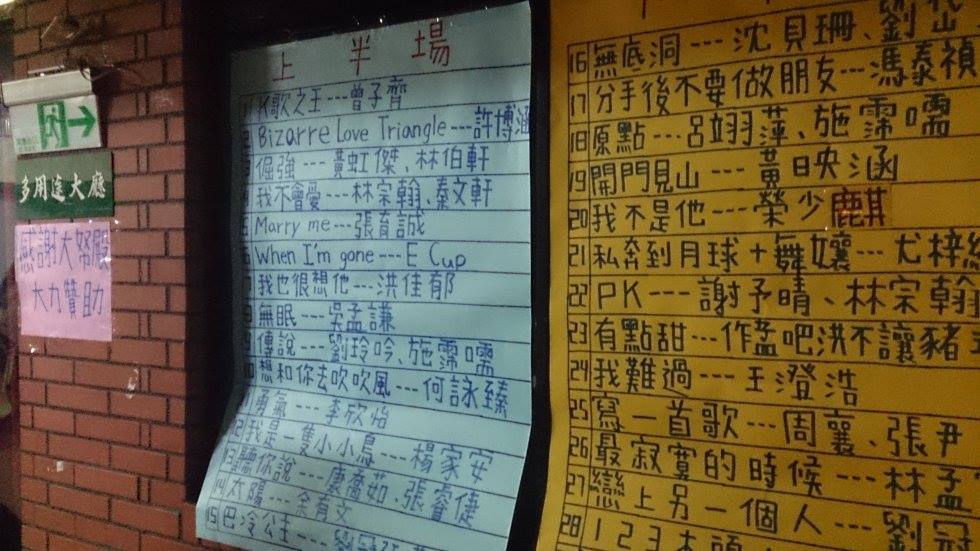 多用途大廳
感謝大努殿
大力贊助
上半場
K歌之王---曾子齊
Bizarre Love Triangle---許博涵
3 倔強---黃虹傑、林伯軒
我不會愛---林宗翰、秦文軒
Marry me---張育誠
When I'm gone---E Cup
我也很想他---洪佳郁
無眠---吳孟謙
9 傳說---劉玲吟、施霈嚅
10 想和你去吹吹風---何詠臻
11 勇氣---李欣怡
12 我是一隻小小鳥---楊家安
13 聽你說---康喬茹、張睿倢
14 太陽---余有文
15 巴冷公主---劉
16 無底洞---沈貝珊、劉
17 分手後不要做朋友---馮泰禎
18 原點---呂翊萍、施霈嚅
19 開門見山---黃映涵
20 我不是他---榮少麒
21 私奔到月球+舞孃---尤梓
22 PK---謝予晴、林宗翰
23 有點甜---作孟吧洪不讓豬
24 我難過---王澄浩
25 寫一首歌---周襄、張尹
26 最寂寞的時候---林孟
27 戀上另一個人---劉冠
28 123木頭